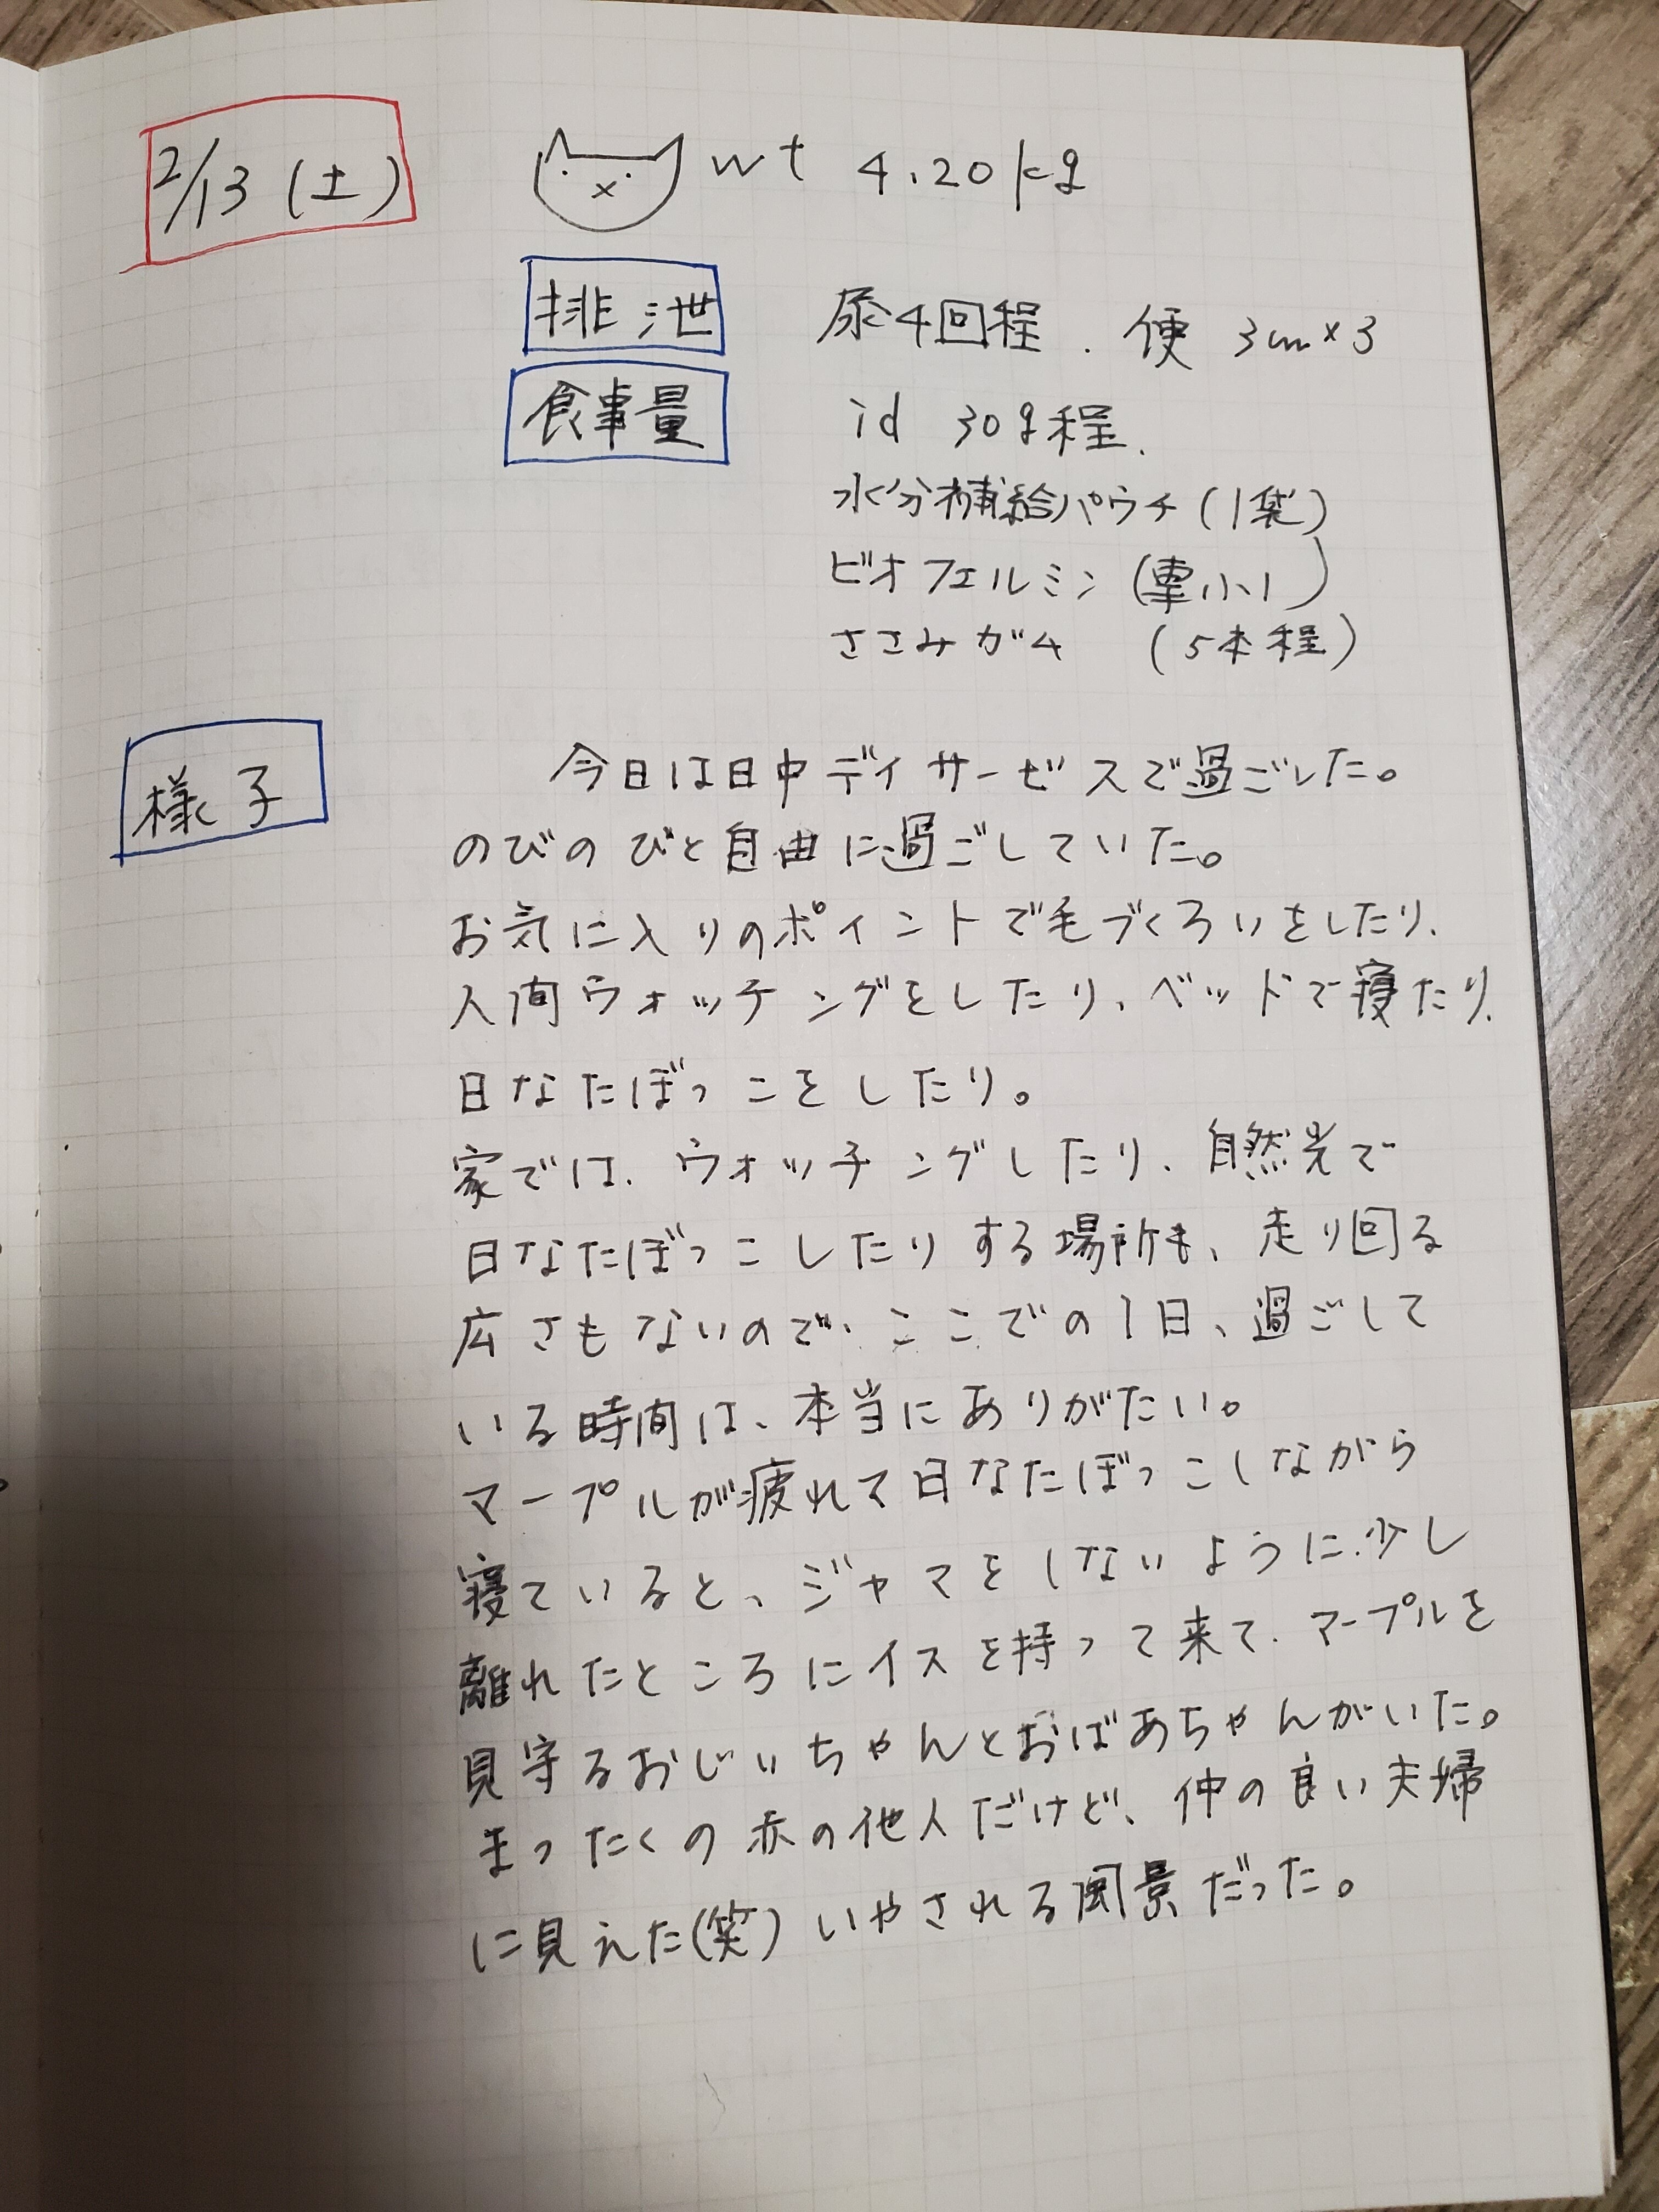 2/13(土)
wt 4.20kg
排泄 尿4回程. 便 3cm×3
食事量 id 30g程.
水分補給パウチ(1袋)
ビオフェルミン(耳小1)
ささみガム (5本程)
様子
今日は日中デイサービスで過ごした。
のびのびと自由に過ごしていた。
お気に入りのポイントで毛づくろいをしたり、
人間ウォッチングをしたり、ベッドで寝たり、
日なたぼっこをしたり。
家では、ウォッチングしたり、自然光で
日なたぼっこしたりする場所も、走り回る
広さもないので、ここでの1日、過ごして
いる時間は、本当にありがたい。
マープルが疲れて日なたぼっこしながら
寝ていると、ジャマをしないように少し
離れたところにイスを持って来て、マープルを
見守るおじいちゃんとおばあちゃんがいた。
まったくの赤の他人だけど、仲の良い夫婦
に見えた(笑)いやされる風景だった。